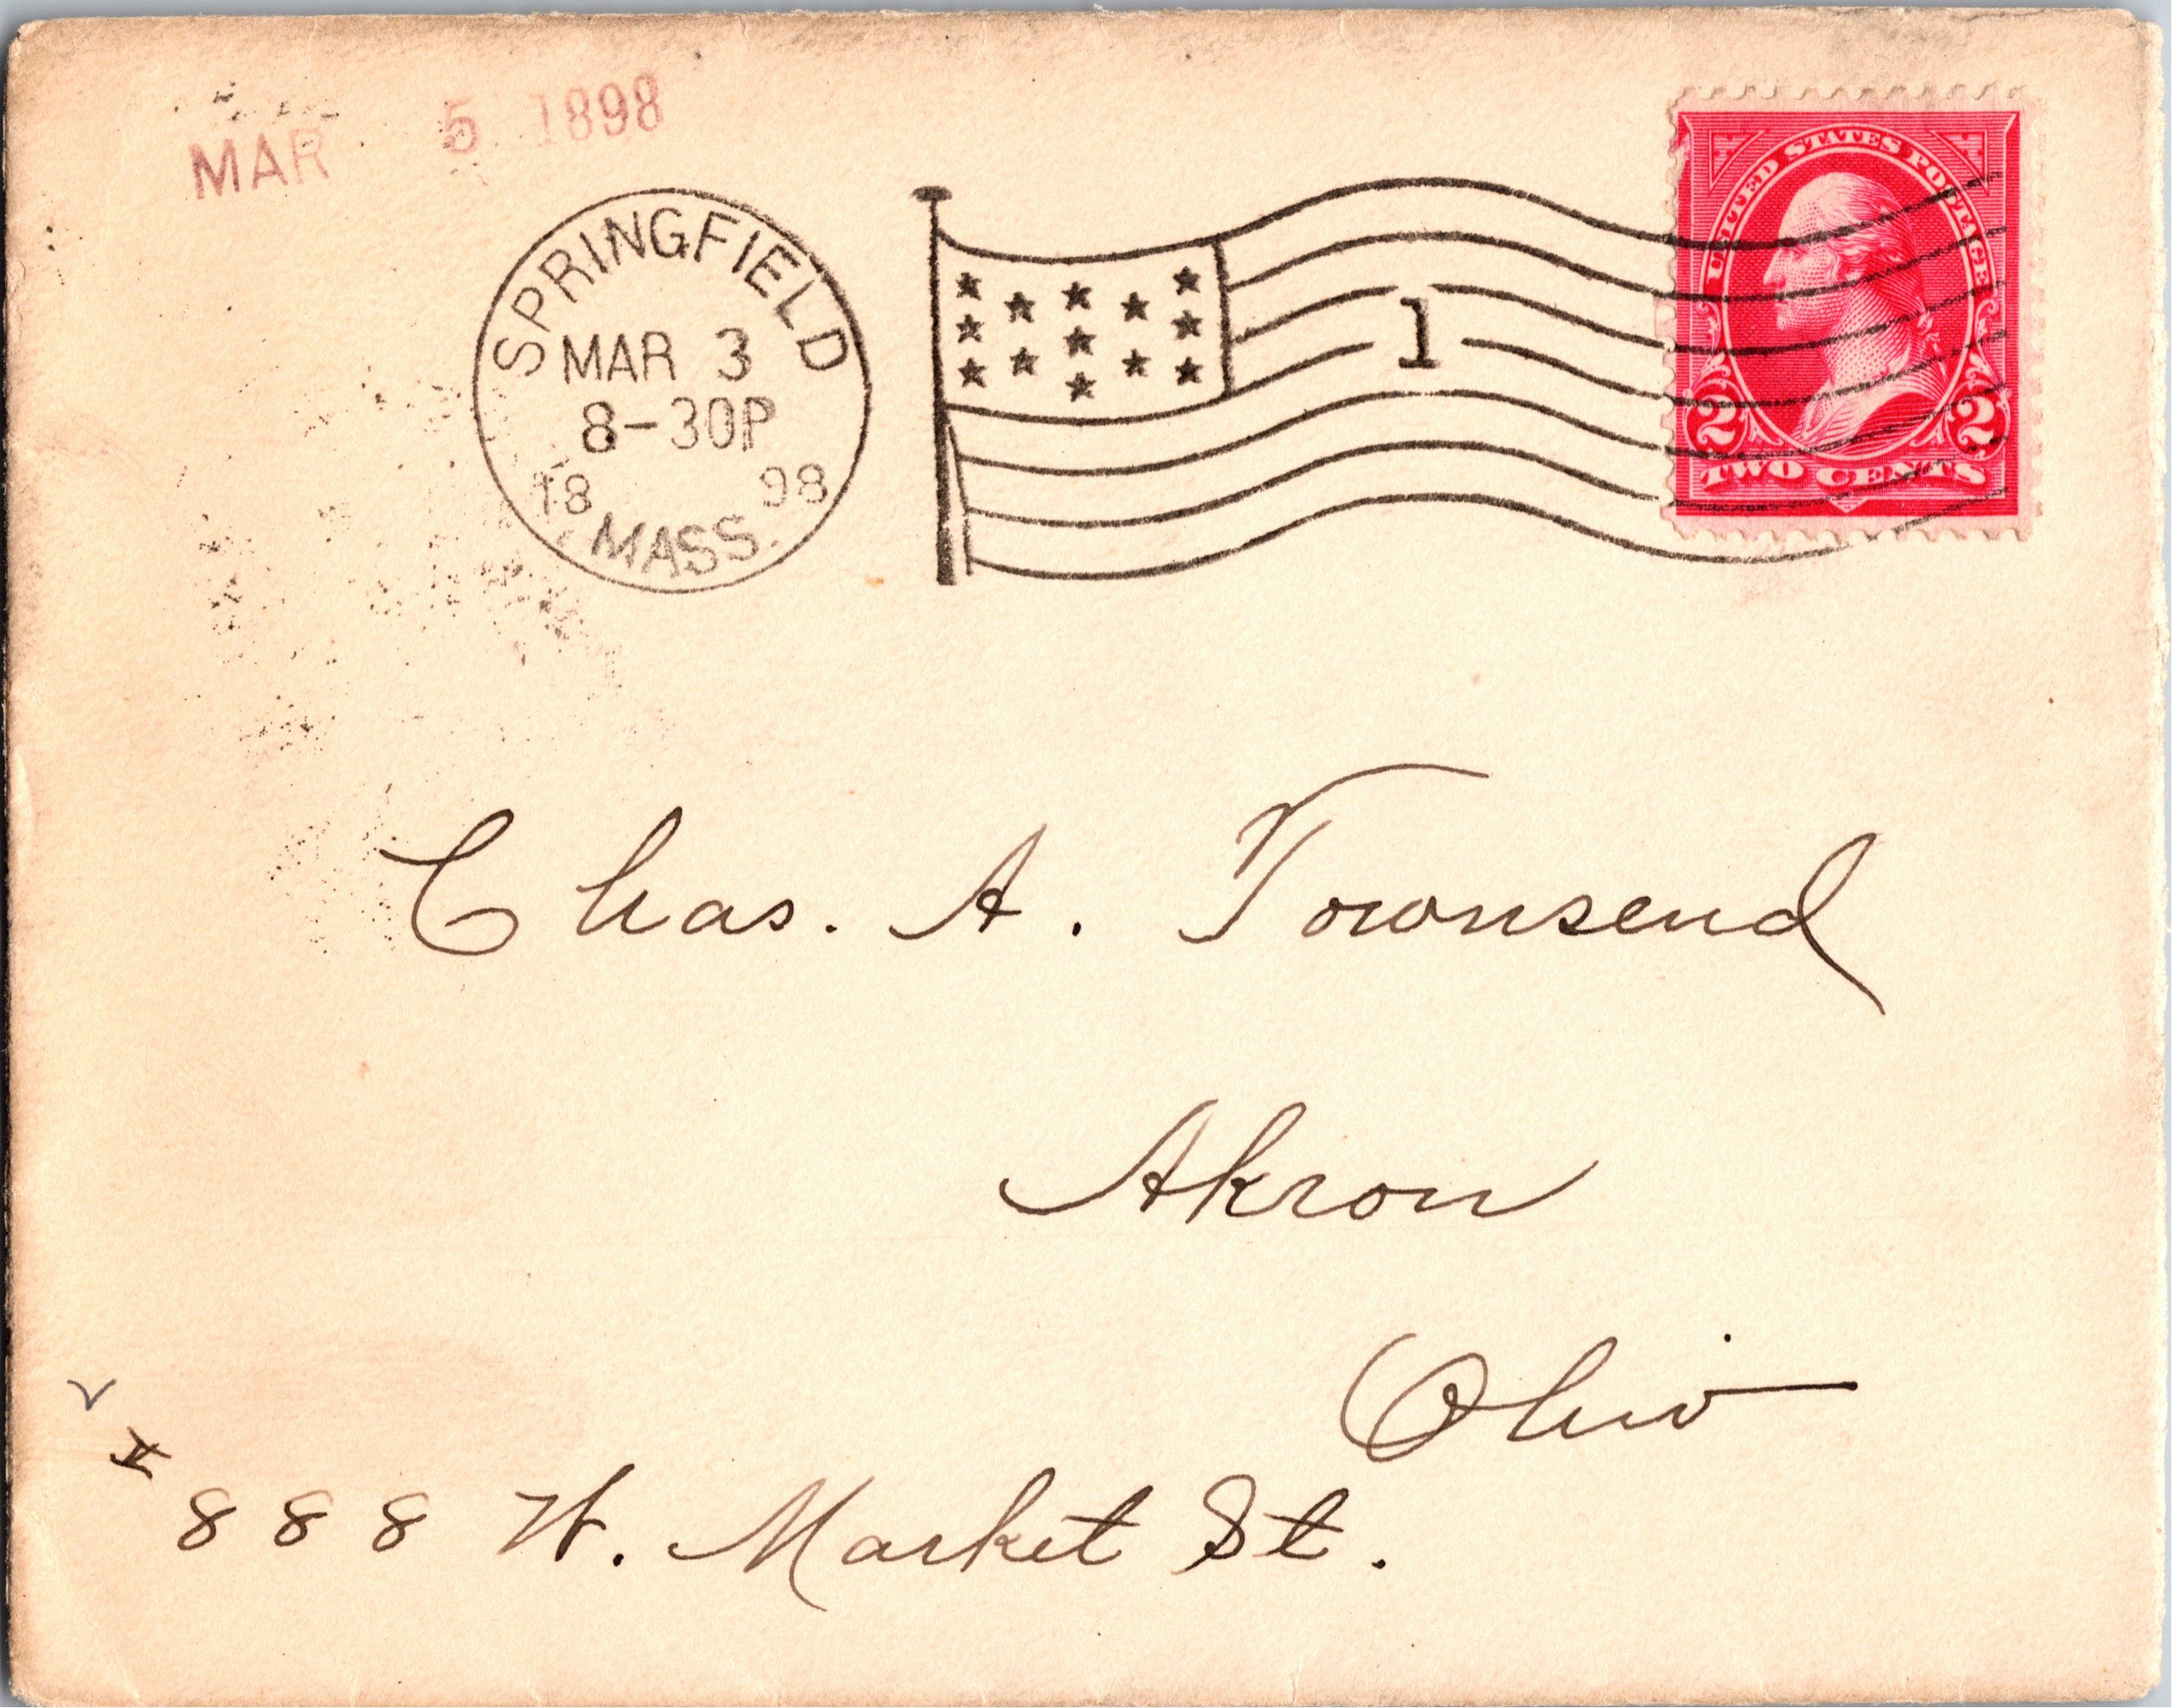 MAR 5 1898
SPRINGFIELD
MAR 3
8-30P
18 98
MASS.
1
UNITED STATES POSTAGE
2 2
TWO CENTS
Chas. A. Townsend
Akron
Ohio
888 W. Market St.